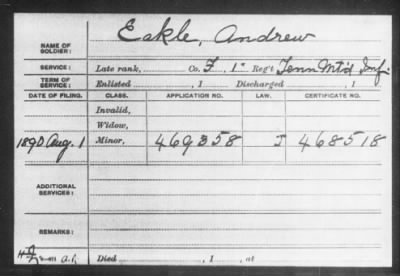 Eakle, Andrew
NAME OF SOLDIER:
SERVICE: Late rank, Co. F, 1" Reg't Tenn Mt'd Inf.
TERM OF SERVICE: Enlisted , 1 Discharged , 1
DATE OF FILING. CLASS. APPLICATION NO. LAW. CERTIFICATE NO.
Invalid,
Widow,
1890 Aug. 1 Minor, 469358 J 468518
ADDITIONAL SERVICES:
REMARKS:
Died , 1 , at